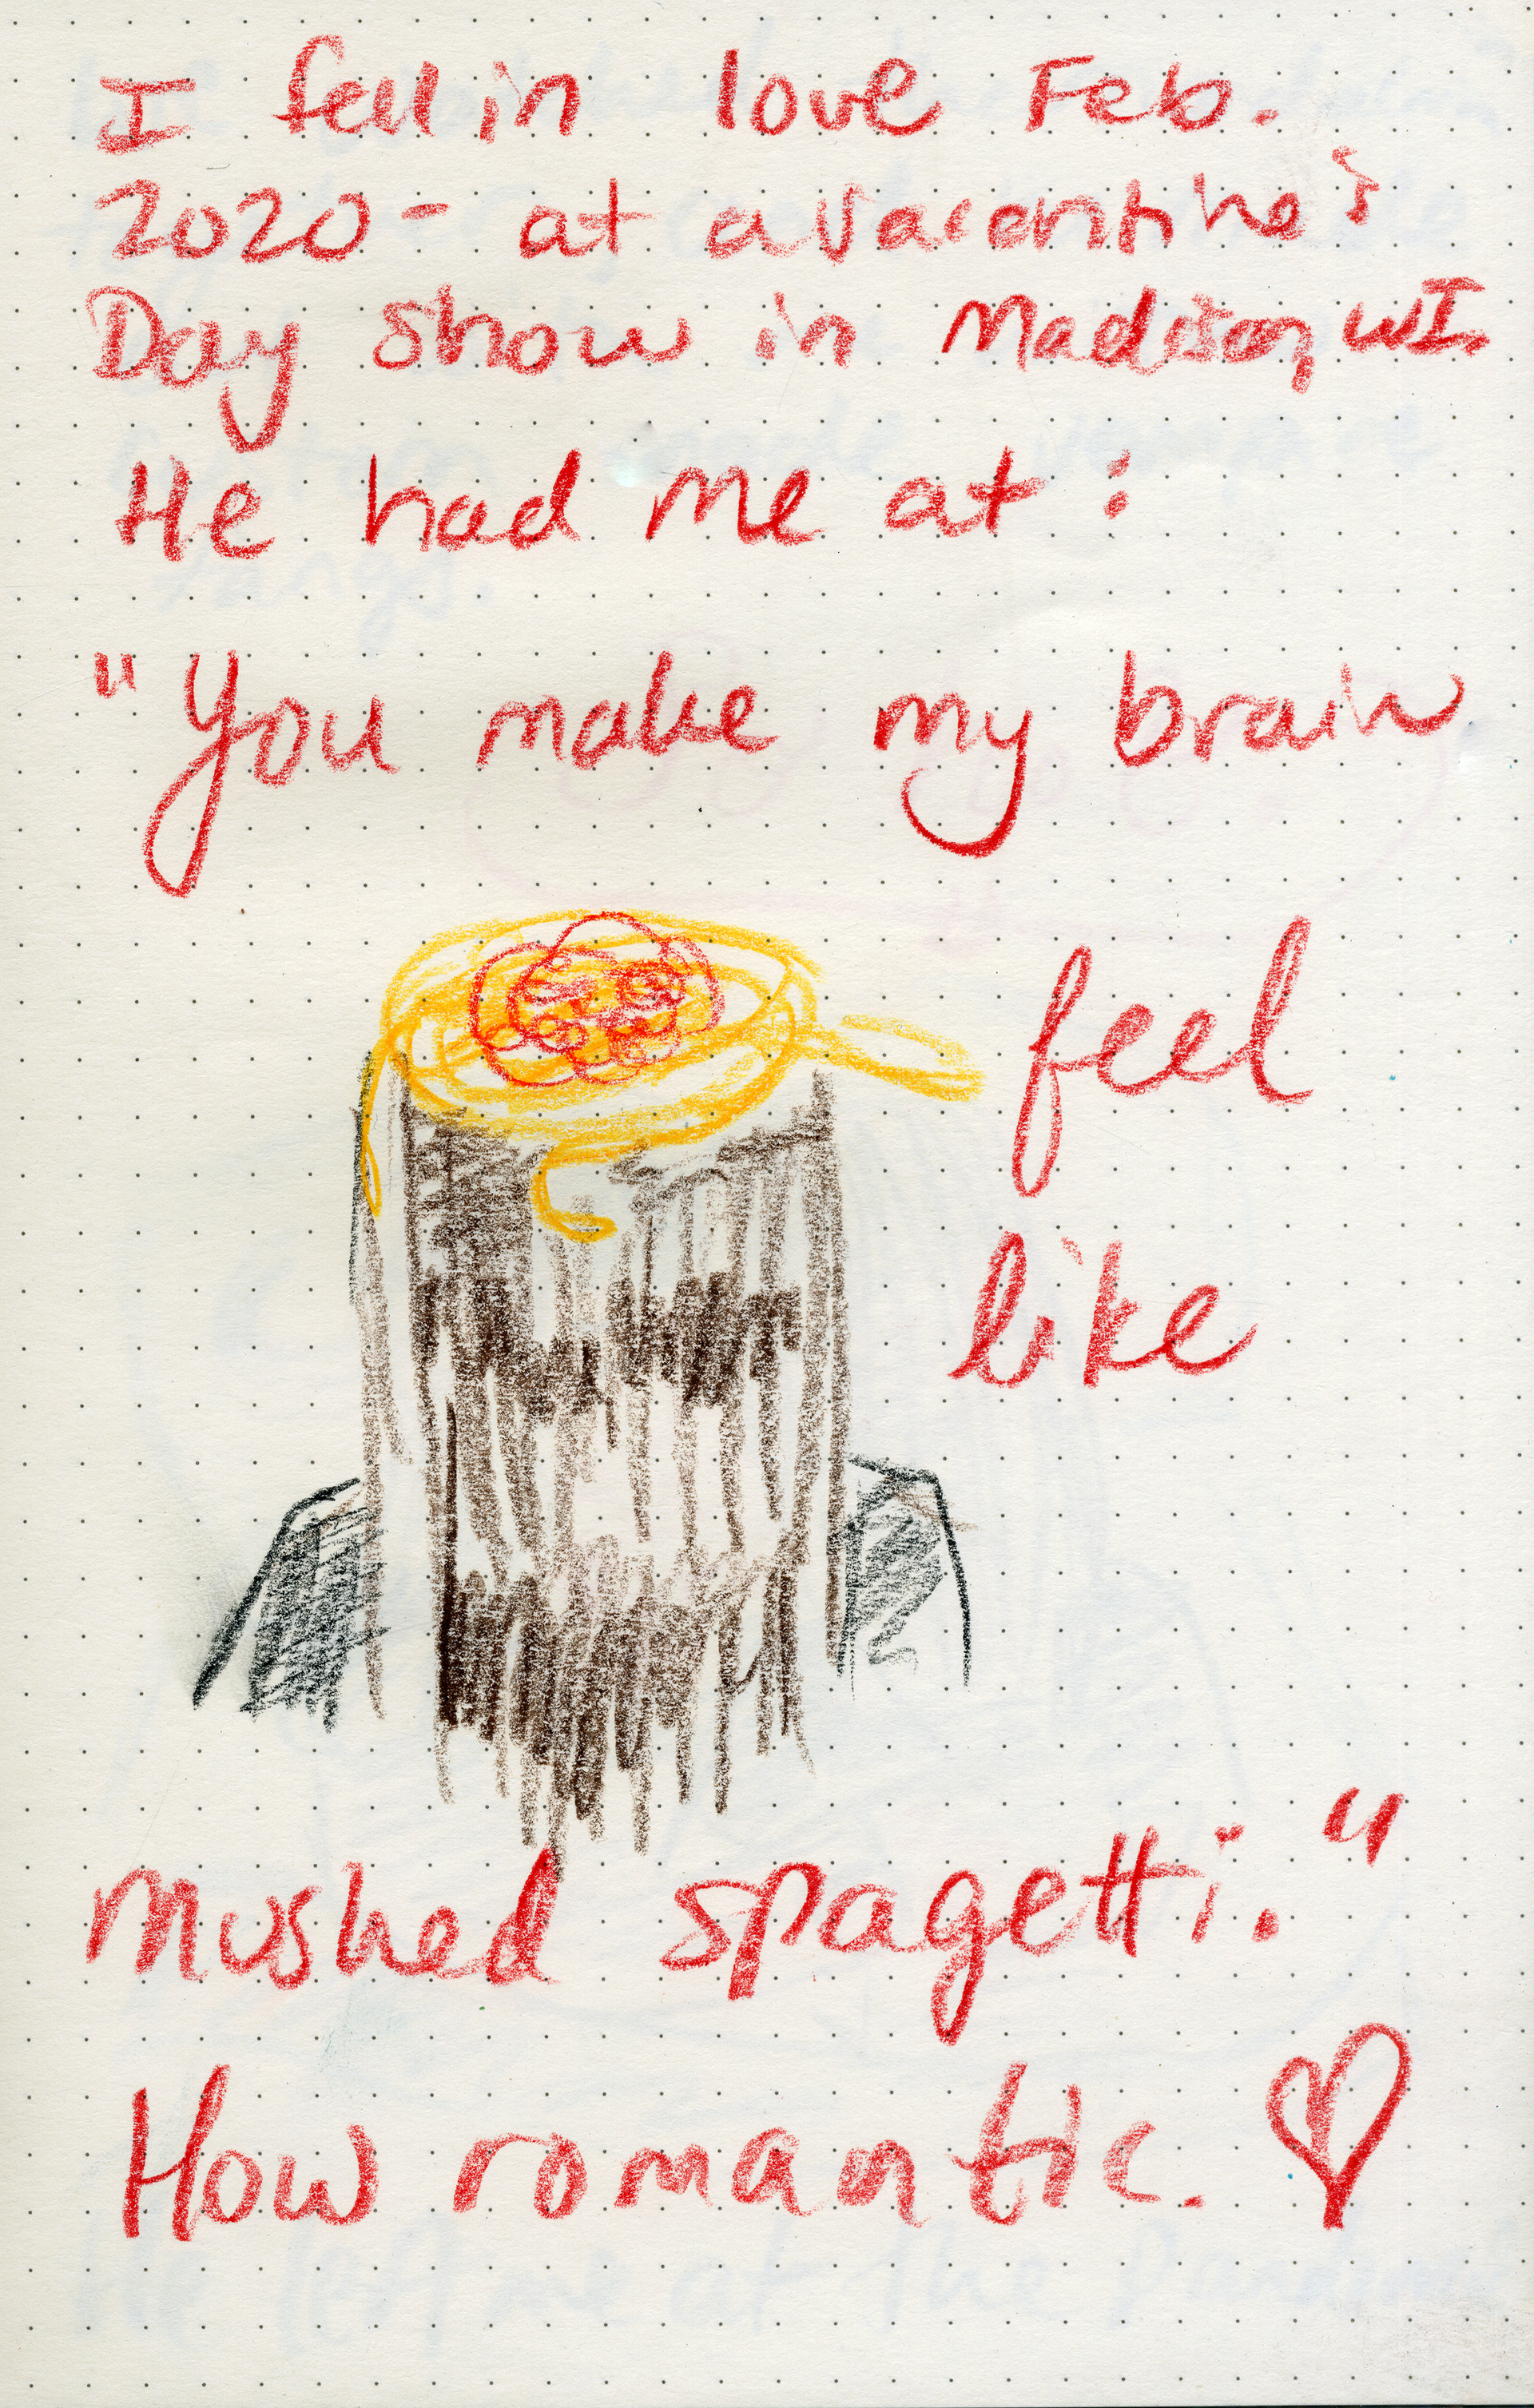 I fell in love Feb.
2020 - at a Valentine's
Day show in Madison, WI.
He had me at:
"You make my brain
feel
like
mushed spagetti."
How romantic.